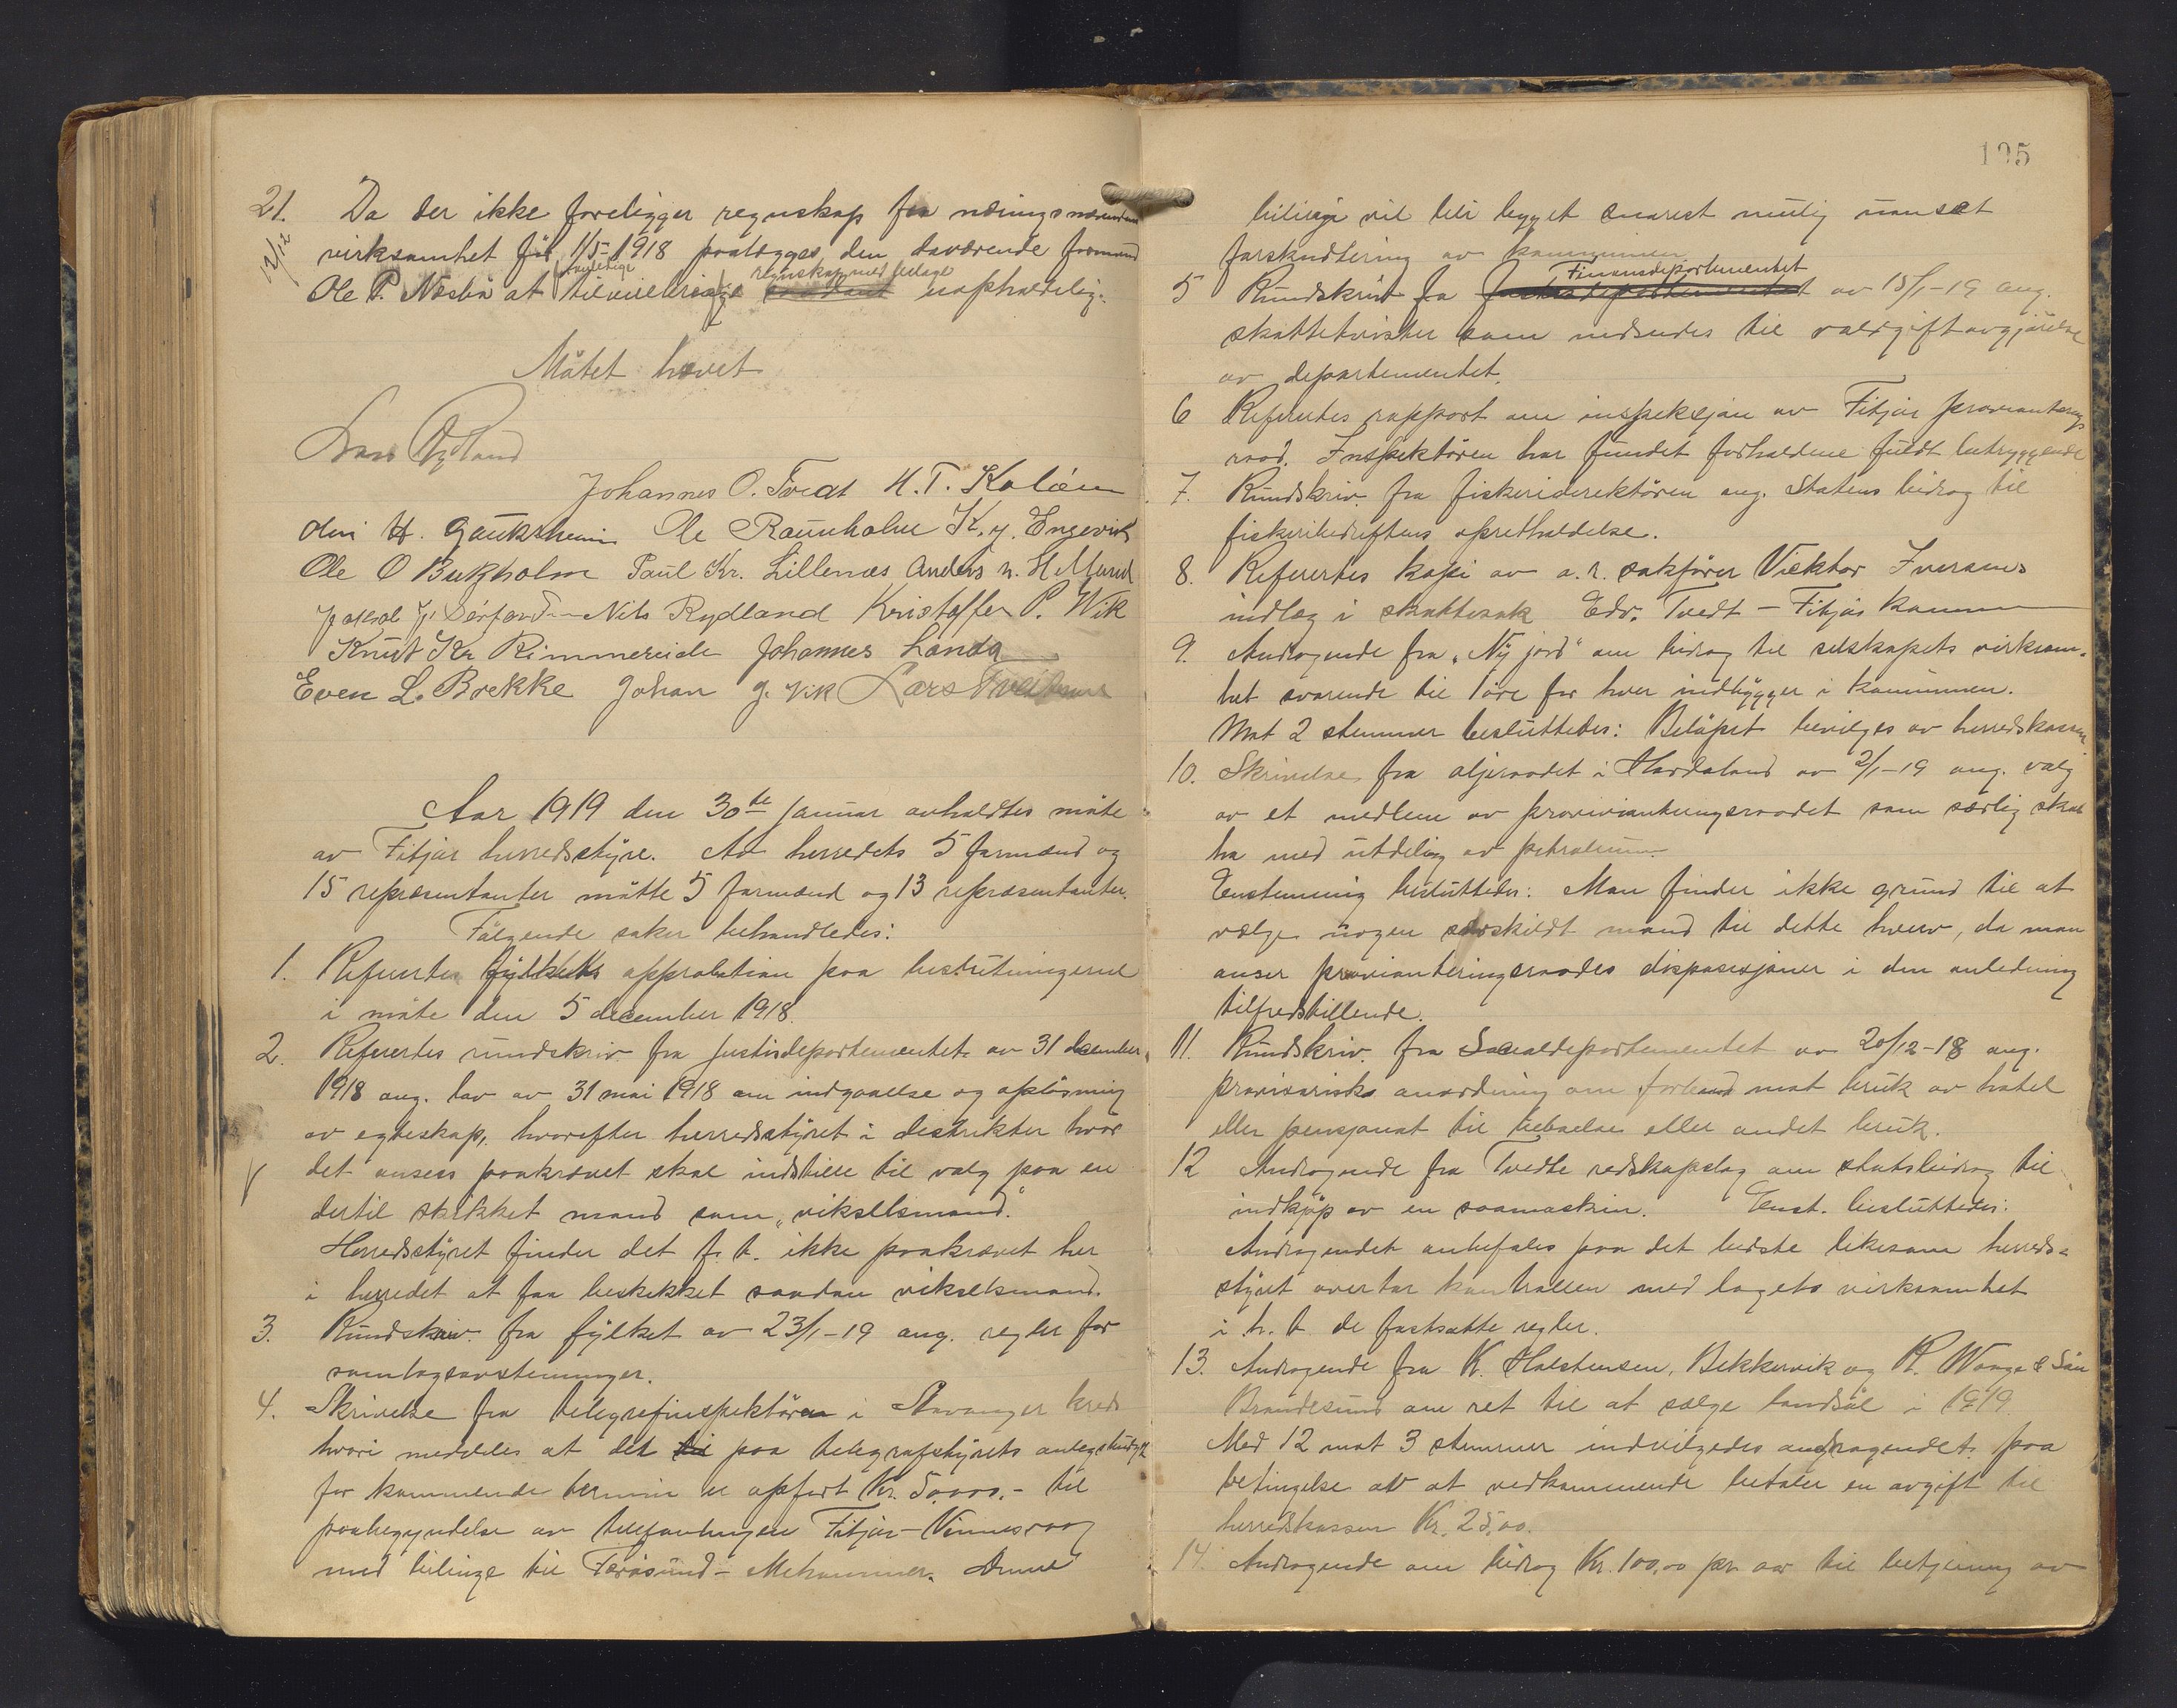 21. Da der ikke foreligger regnskap fra næringsnævndens
12/12
virksomhet før 1/5-1918 paalægges den daværende formand
Ole P. Nesbø at tilveiebringe regnskap med bilage uopholdelig.
Møtet hævet
Johannes O. Tveat H. T. Koløen
Olai H. Gauksheim Ole Raunholm K. J. Engevik
Ole O Bukholm Paul Kr. Lillenæs Anders n. H
Jakob J. Sørfond Nils Rydland Kristoffer P. Wik
Knut Kr Rimmereide Johannes Landa
Even L. Brekke Johan J. Vik Lars
Aar 1919 den 30te januar avholdtes møte
av Fitjar herredsstyre. Av herredets 5 formænd og
15 representanter møtte 5 formænd og 13 repræsentanter.
Følgende saker behandledes:
1. Refertes fylkets approbation paa beslutningerne
i møte den 5 december 1918.
2. Refertes rundskriv fra Justisdepartementet av 31 december
1918 ang. lov av 31 mai 1918 om indgaaelse og opløsning
av egteskap, hvorefter herredsstyret i distrikter hvor
det ansees paakrævet skal indstille til valg paa en
dertil skikket mand som "vikselsmand."
Herredsstyret finder det f. t. ikke paakrævet her
i herredet at faa beskikket saadan vikselsmand.
3. Rundskriv fra fylket av 23/1-19 ang. regler for
samlagsavstemninger.
4. Skrivelse fra telegrafinspektøren i Stavanger kreds
hvori meddeles at det paa telegrafstyrets anlægsbudget
for kommende termin er opført Kr. 5.000.- til
paabegyndelse av telefonlinjen Fitjar-Vinnesvaag
med bilinje til Terøsund - Mehammer. Denne
195
bilinje vil bli bygget snarest mulig uanset
forskudtering av kommunen.
5 Rundskriv fra Finansdepartementet av 15/1-19 ang.
skattetvister som indsendes til voldgiftavgjørelse
av departementet.
6 Refertes rapport om inspeksjon av Fitjar provianterings
raad. Inspektøren har fundet forholdene fuldt betryggende
7. Rundskriv fra fiskeridirektøren ang. Statens bidrag til
fiskeribedriftens opretholdelse.
8. Refertes kopi av o.r. sakfører Viktor Iversens
indlæg i skattesak Edv. Tvedt - Fitjar kommune
9. Andragende fra "Ny jord" om bidrag til selskapets virksom-
het svarende til 1 øre for hver indbygger i kommunen.
Mot 2 stemmer besluttedes: Beløpet bevilges av herredskassen.
10. Skrivelse fra oljeraadet i Hordaland av 2/1-19 ang. valg
av et medlem av provianteringsraadet som særlig skal
ha med utdeling av petroleum.
Enstemmig besluttedes: Man finder ikke grund til at
vælge nogen særskildt mand til dette hverv, da man
anser provianteringsraades disposisjoner i den anledning
tilfredstillende.
11. Rundskriv. fra Socialdepartementet av 20/12-18 ang.
provisorisk anordning om forbud mot bruk av hotel
eller pensjonat til beboelse eller andet bruk.
12 Andragende fra Tvedte redskapslag om statsbidrag til
indkjøp av en saamaskin. Enst. besluttedes:
Andragendet anbefales paa det bedste likesom herreds-
styret overtar kontrollen med lagets virksomhet
i h. t. de fastsatte regler.
13. Andragende fra K. Halstensen, Bekkervik og P. Waage & Søn
Brandesund om ret til at sælge landsøl i 1919.
Med 12 mot 3 stemmer indvilgedes andragendet paa
betingelse av at vedkommende betaler en avgift til
herredskassen Kr. 25,00.
14. Andragende om bidrag Kr. 100,00 pr. aar til betjening av